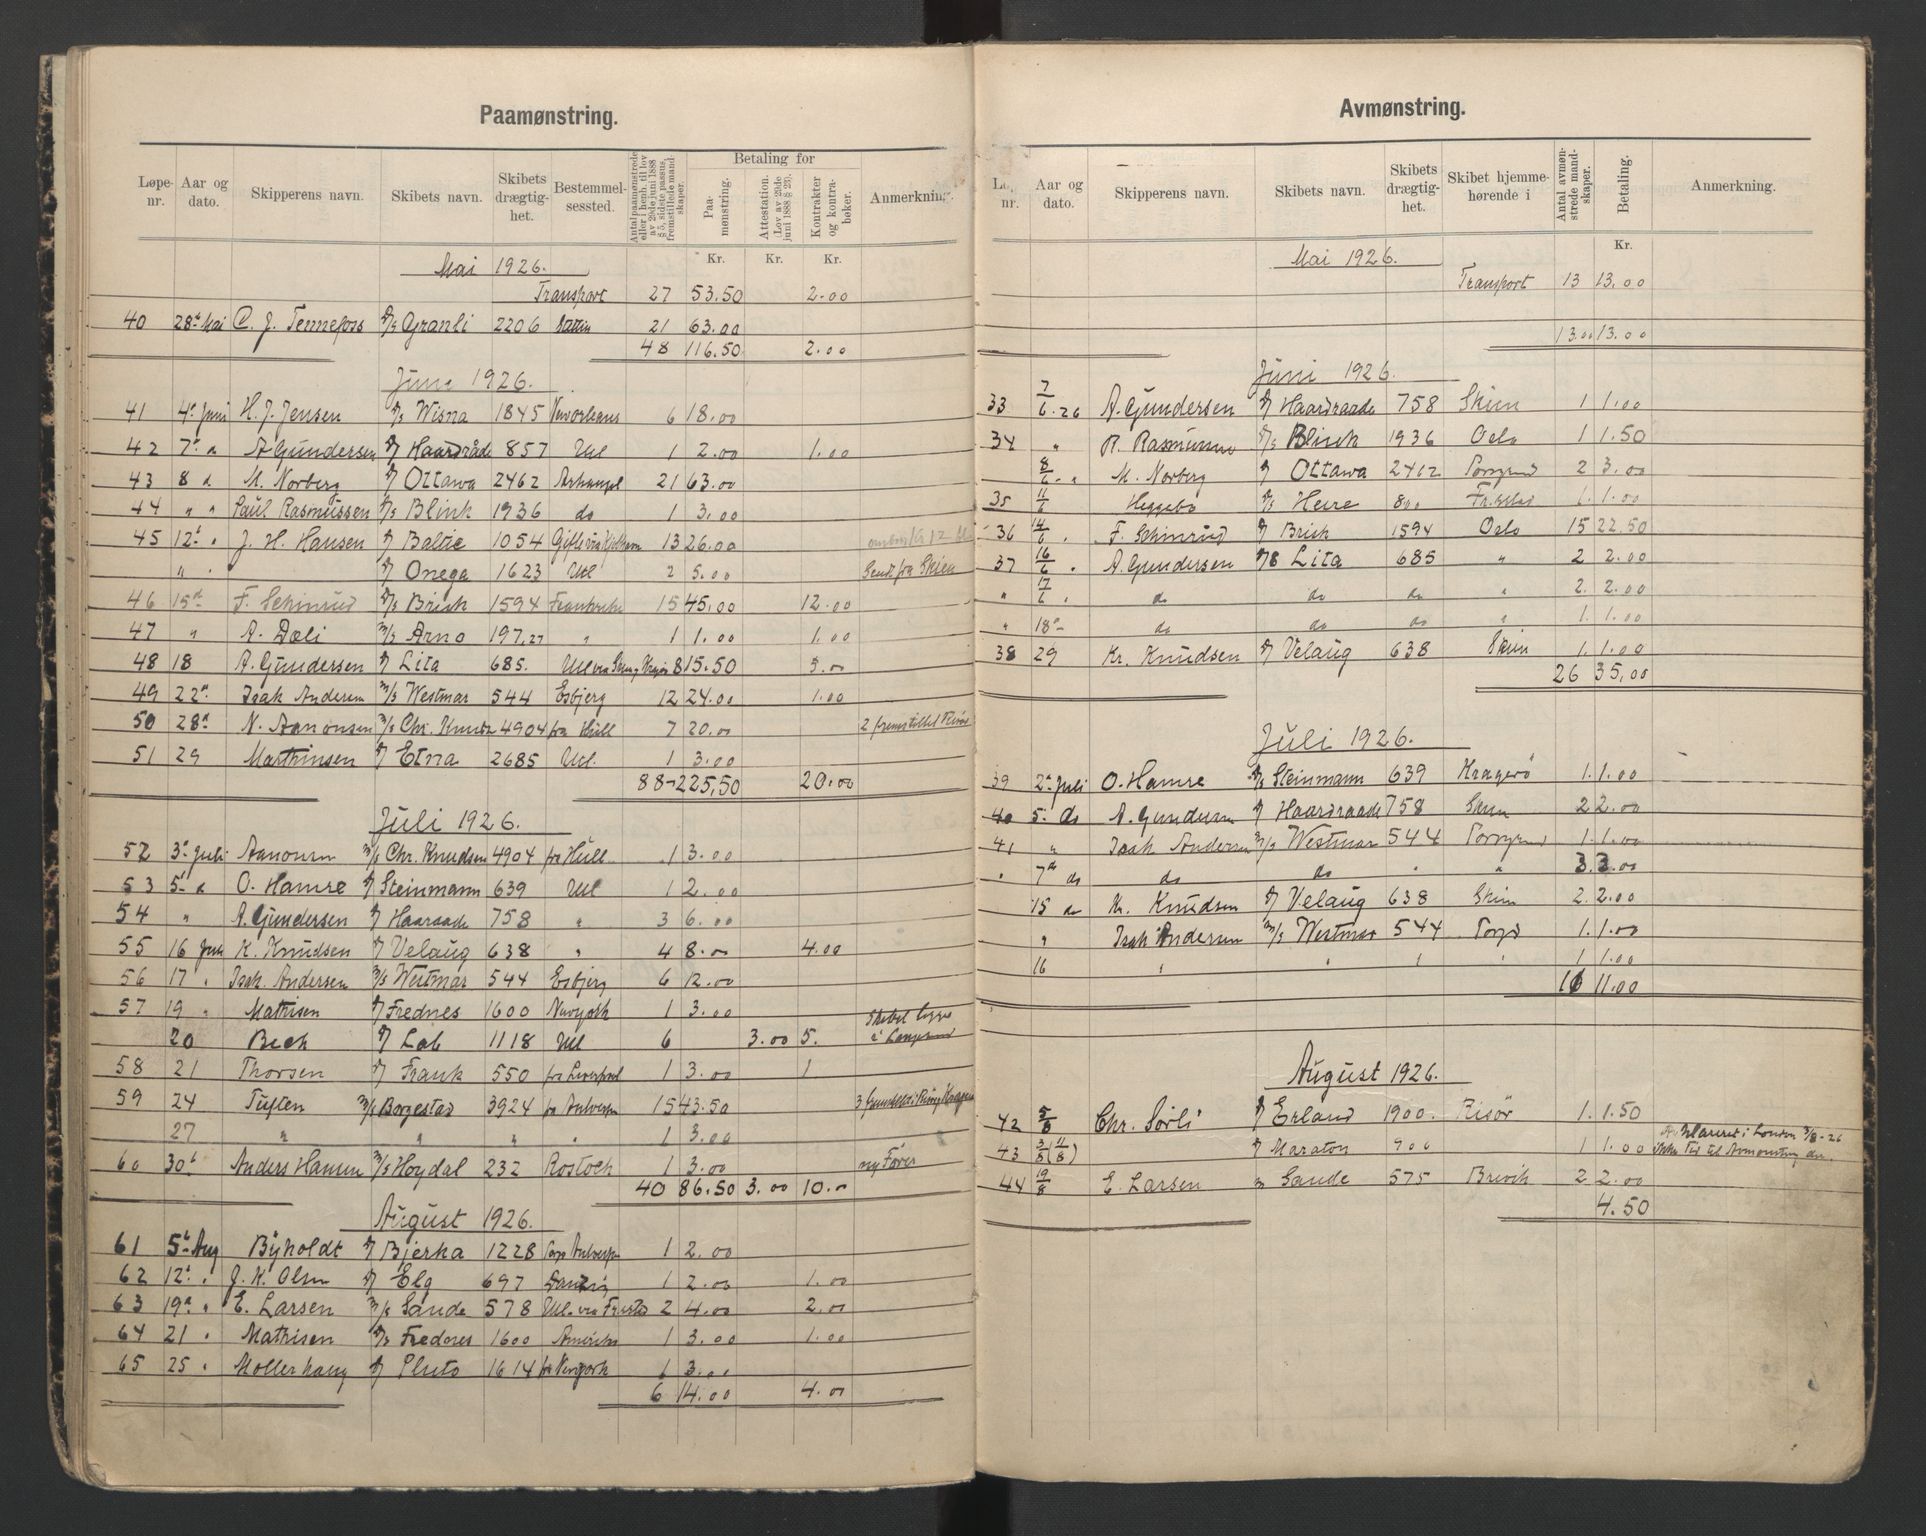 Paamønstring.
Løpe-nr. Aar og dato. Skipperens navn. Skibets navn. Skibets drægtig-het. Bestemmel-sessted. Antal paamønstrede eller i henh. til lov av 29de juni 1888 § 5, sidste passus, fremstillede mand-skaper. Betaling for Paa-mønstring. Attestation. (Lov av 29de juni 1888 § 23). Kontrakter og kontra-bøker. Anmerkning.
Kr. Kr. Kr.
Mai 1926.
Transport 27 53.50 2.00
40 28de Mai C. J. Tennefoss D/S Granli 2206 Stettin 21 63.00
48 116.50 2.00
Juni 1926.
41 4de Juni H. J. Jensen D/S Wisna 1845 Neworleans 6 18.00
42 7de " A Gundersen D/S Haardråde 857 Utl 1 2.00 1.00
43 8 d M. Norberg D/S Ottawa 2462 Arkangel 21 63.00
44 " " Paul Rasmussen D/S Blink 1936 do 1 3.00
45 12te " J. H. Hansen D/S Baltic 1054 Gefle via 13 26.00
" " D/S Onega 1623 Utl 2 5.00 Sendt fra Skien
46 15de F. Schinrud D/S Brisk 1594 Frankrike 15 45.00 12.00
47 " A. Dæli M/S Arno 197,27 " 1 1.00 1.00
48 18 A. Gundersen D/S Lita 685. Utl via 8 15.50 5.00
49 22de Isak Andersen M/S Westmar 544 Esbjerg 12 24.00 1.00
50 28de N. Aanonsen M/S Chr. Knuds 4904 fra Hull 7 20.00 2 fremstillet
51 29 Mathinsen D/S Etna 2685 Utl. 1 3.00
88 225,50 20.00
Juli 1926.
52 3de Juli Aanonsen M/S Chr. Knudsen 4904 fra Hull 1 3.00
53 5te d O. Hamre D/S Steinmann 639 Utl 1 2.00
54 " A. Gundersen D/S Haaraade 758 " 3 6.00
55 16 Juli K. Knudsen D/S Velaug 638 " 4 8.00 4.00
56 17 " Isak. Andersen M/S Westmar 544 Esbjerg 6 12.00
57 19 " Mathisen D/S Frednes 1600 Newyork 1 3.00
20 Beck D/S Lab 1118 Utl 6 3.00 5. Skibet ligger i Langesund
58 21 Thorsen D/S Frank 550 fra Liverpool 1 3.00 1
59 24 Tuften M/S Borgestad 3924 fra Antverpen 15 43.50
27 " " " " 1 3.00
60 30te Anders Hansen M/S Høydal 232 Rostock 1 3.00 ny Fører
40 86.50 3.00 10.00
August 1926.
61 5te Aug Byholdt D/S Bjerka 1228 Antverpen 1 2.00
62 12te " J. K. Olsen D/S Elg 697 Danzig 1 2.00 1.00
63 19de " E. Larsen M/S Sande 578 Utl. via 2 4.00 2.00
64 21 " Mathisen D/S Frednes 1600 Amerika 1 3.00 1.00
65 25 " Møllerhaug D/S Pluto 1614 fra Newyork 1 3.00
6 14.00 4.00
Avmønstring.
nr. Aar og dato. Skipperens navn. Skibets navn. Skibets drægtig-het. Skibet hjemme-hørende i Antal avmøn-strede mand-skaper. Betaling. Anmerkning.
Kr.
Mai 1926.
Transport 13 13.00
13.00 13.00
Juni 1926.
33 7/6.26 A. Gundersen D/S Haardraade 758 Skien 1 1.00
34 " R. Rasmussen D/S Blink 1936 Oslo 1 1.50
8/6 " M. Norberg D/S Ottawa 2462 Porsgrund 2 3.00
35 11/6 Heggebø D/S Heire 800 Fr.stad 1. 1.00
36 14/6 . F. Schinrud D/S Brisk 1594 Oslo 15 22.50
37 16/6 . A. Gundersen D/S Lita 685 " 2 2.00
" 17/6 . do do do " 2. 2.00
" 18de do do do " 1. 1.00
38 29 Kr. Knudsen D/S Velaug 638 Skien 1. 1.00
26 35,00
Juli 1926.
39 2de Juli O. Hamre D/S Steinmann 639 Kragerø 1. 1.00
40 5te do A. Gundersen D/S Haardraade 758 Skien 2 2.00
41 " Isak Andersen M/S Westmar 544 Porsgrund 1. 1.00
" 7de do do do " " 3. 3.00
15 do Kr. Knudsen D/S Velaug 638 Skien 2. 2.00
" Isak Andersen M/S Westmar 544 Porsgd 1. 1.00
16 " " " " 1 1.00
11.00
August 1926.
42 5/8 Chr. Sørli D/S Erland 1900. Risør 1. 1.50
43 3/8 (11/8) D/S Maraton 900 1 1.00 Klareret i London 3/8-26 ikke Tid til Avmønstring der.
44 19/8 E. Larsen M Sande 575 Brevik 2 2.00
4.50